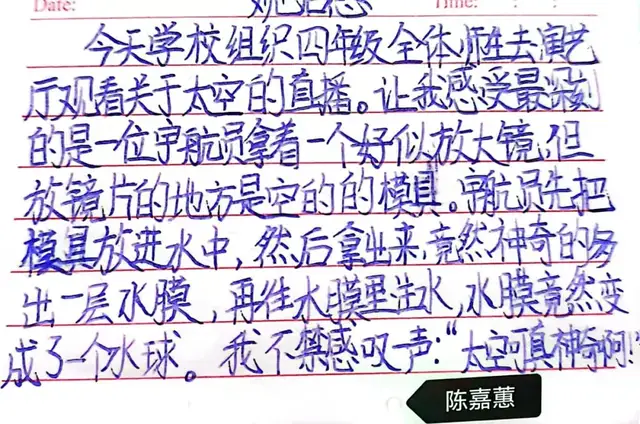 Date:
Time:
观后感
今天学校组织四年级全体师生去演艺
厅观看关于太空的直播。让我感受最深刻
的是一位宇航员拿着一个好似放大镜,但
放镜片的地方是空的的模具。宇航员先把
模具放进水中,然后拿出来,竟然神奇的多
出一层水膜,再往水膜里注水,水膜竟然变
成了一个水球。我不禁感叹一声:“太空可真神奇啊!”
陈嘉蕙